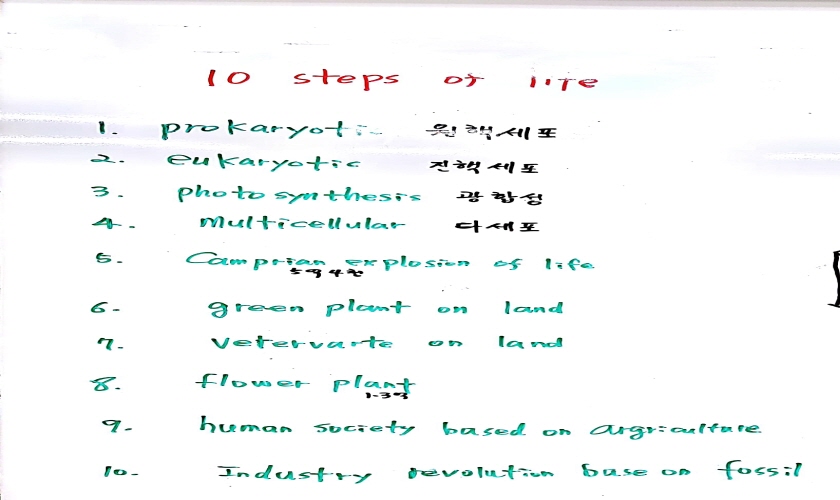 10 steps of life
1. prokaryotic 원핵세포
2. eukaryotic 진핵세포
3. photosynthesis 광합성
4. Multicellular 다세포
5. Camprian explosion of life
5억4천
6- green plant on land
7- Vetervarte on land
8. flower plant
1.3억
9- human society based on argriculture
10- Industry revolution base on fossil